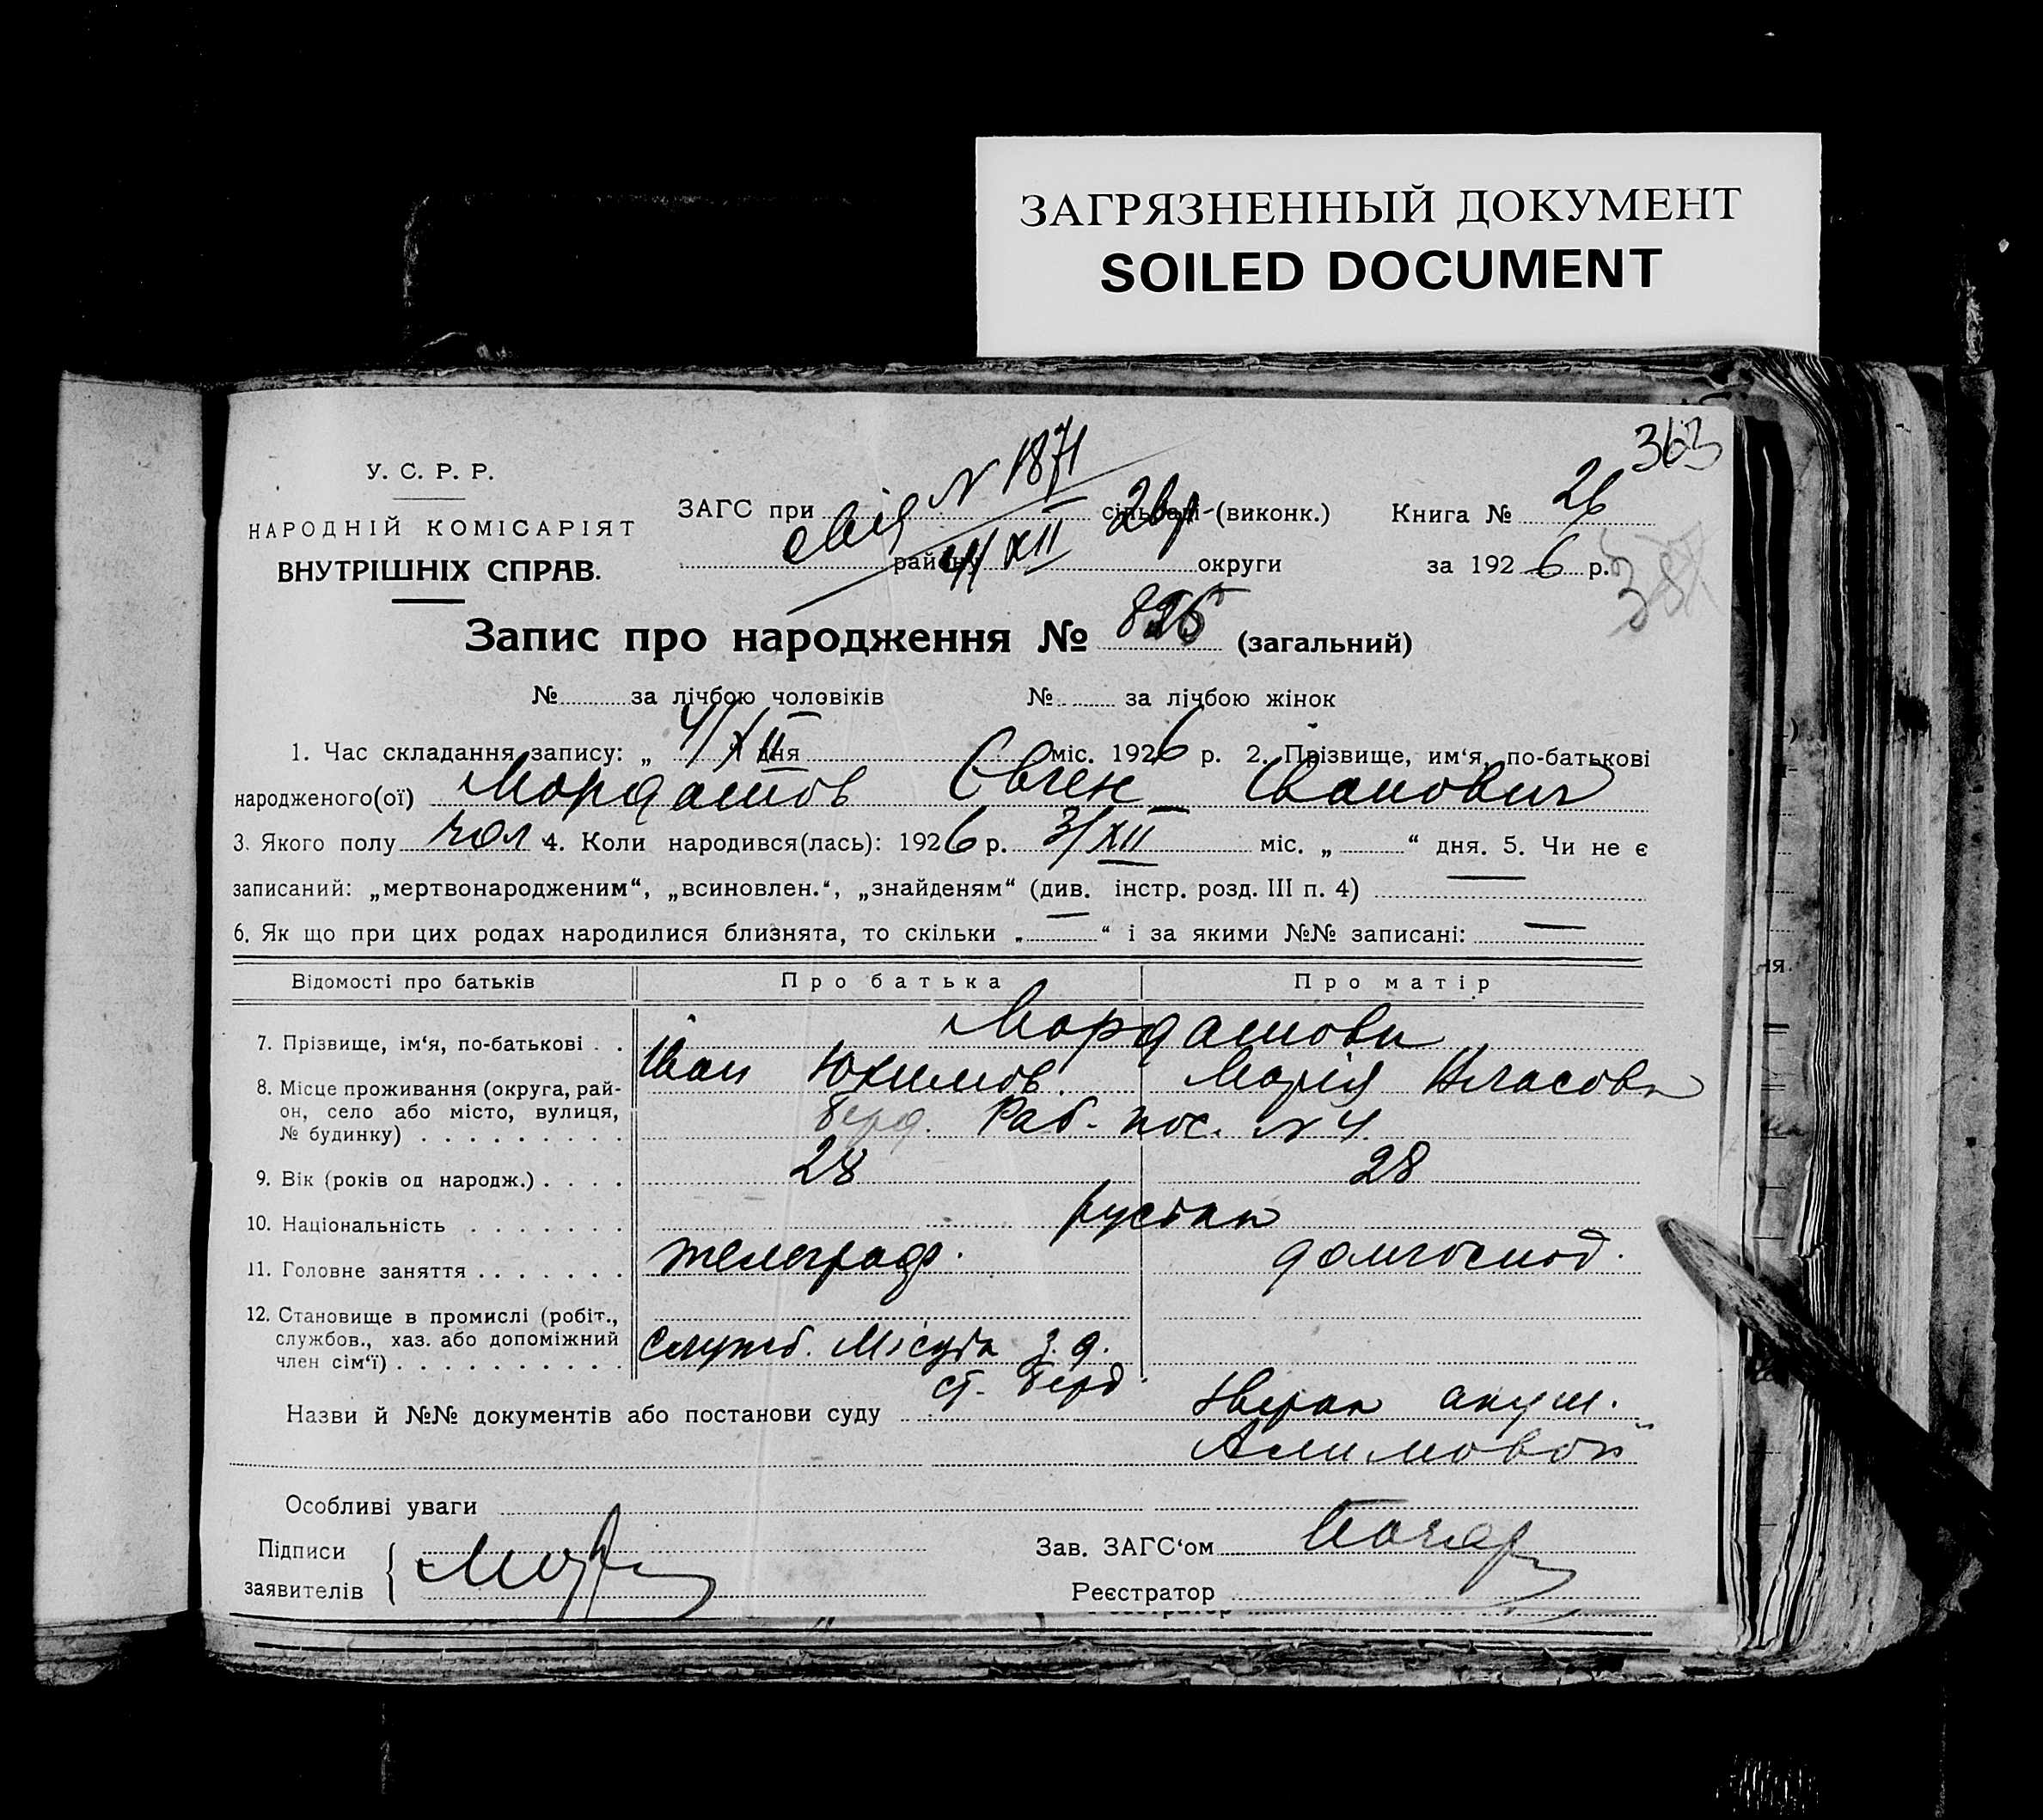 ЗАГРЯЗНЕННЫЙ ДОКУМЕНТ
SOILED DOCUMENT
363
У. С. Р. Р.
НАРОДНІЙ КОМІСАРІЯТ
ВНУТРІШНІХ СПРАВ.
N 1871
ЗАГС при сільраді (виконк.) Книга № 26
свід 4/XII 26 р
району округи за 1926 р.
Запис про народження № (загальний)
№ за лічбою чоловіків № за лічбою жінок
1. Час складання запису: „ 4/XII дня міс. 1926 р. 2. Прізвище, им‘я, по-батькові
народженого(ої) Мордашов Євген Іванович
3. Якого полу чол 4. Коли народився(лась): 1926 р. 3/XII міс. „ “ дня. 5. Чи не є
записаний: „мертвонародженим“, „всиновлен.“, „знайденям“ (див. інстр. розд. III п. 4) —
6. Як що при цих родах народилися близнята, то скільки „ — “ і за якими №№ записані: —
Відомості про батьків Про батька Про матір
7. Прізвище, ім‘я, по-батькові . . Мордашови
Іван Юхимов. Марія Власовн
8. Місце проживання (округа, рай-
он, село або місто, вулиця,
№ будинку) . . . . . . . . . Берд. Раб. пос. N 4.
9. Вік (років од народж.) . . . . 28 28
10. Національність . . . . . . . руськи
11. Головне заняття . . . . . . . телеграф. домгоспод.
12. Становище в промислі (робіт.,
службов., хаз. або допоміжний
член сім‘ї) . . . . . . . . . . Служб. з. д.
ст. Берд.
Назви й №№ документів або постанови суду акуш.
Алимовой
Особливі уваги
Підписи
заявителів
Зав. ЗАГС‘ом
Реєстратор